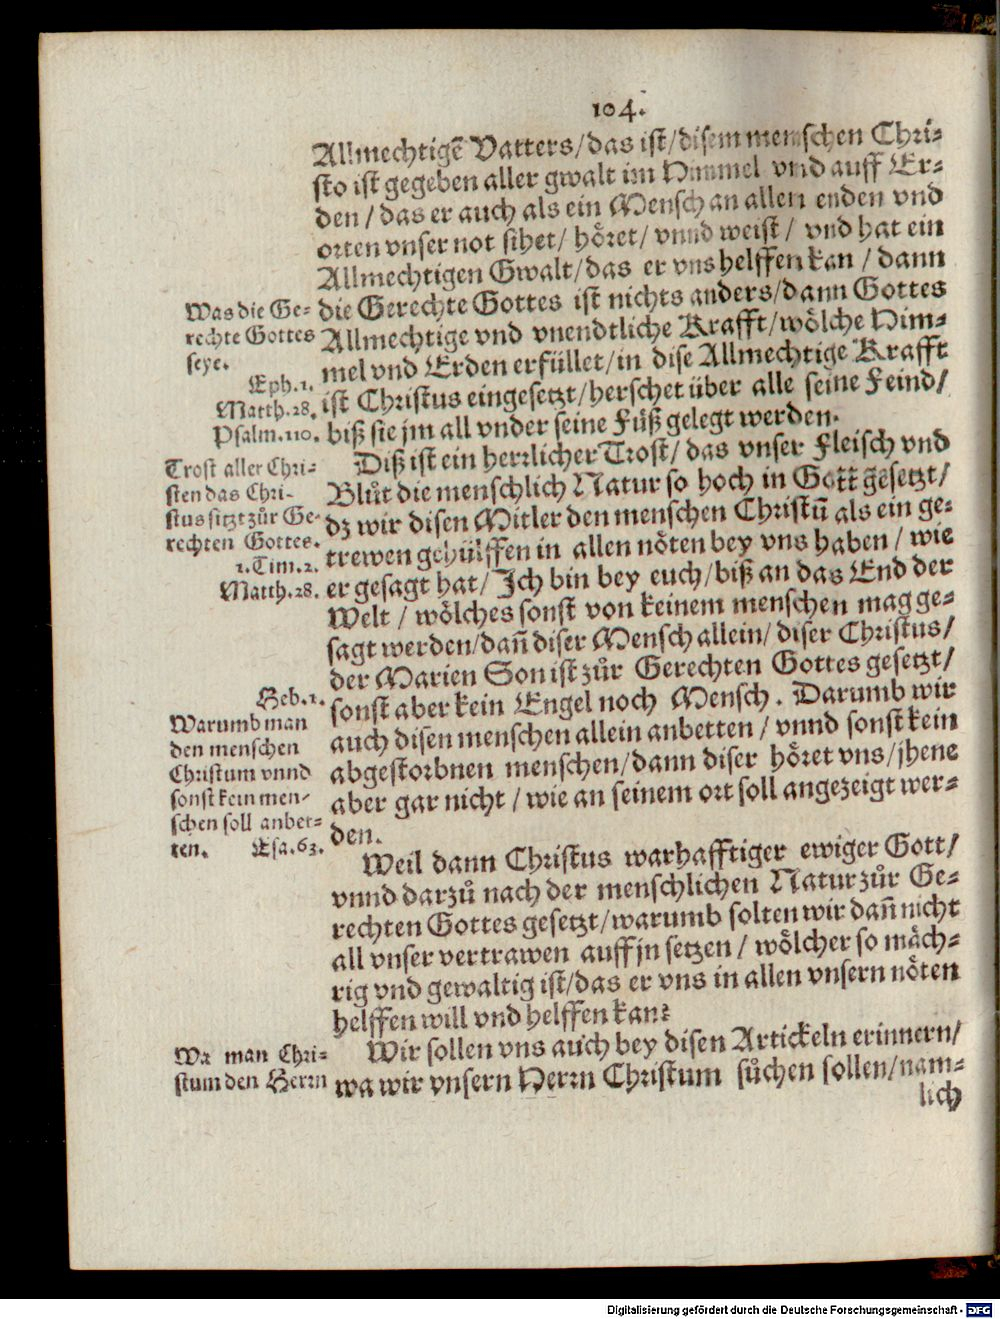 104.
Allmechtigẽ Vatters/das ist/disem menschen Chri-
sto ist gegeben aller gwalt im Himmel vnd auff Er-
den / das er auch als ein Mensch an allen enden vnd
orten vnser not sihet/ hoͤret/ vnnd weist / vnd hat ein
Allmechtigen Gwalt/das er vns helffen kan / dann
die Gerechte Gottes ist nichts anders/dann Gottes
Allmechtige vnd vnendtliche Krafft/woͤlche Him-
mel vnd Erden erfüllet/in dise Allmechtige Krafft
ist Christus eingesetzt/herschet über alle seine Feind/
biß sie jm all vnder seine Fuͤß gelegt werden.
Was die Ge-
rechte Gottes
seye.
Eph.1.
Matth.28.
Psalm.110.
Diß ist ein herrlicher Trost/ das vnser Fleisch vnd
Bluͦt die menschlich Natur so hoch in Gott gesetzt/
dz wir disen Mitler den menschen Christũ als ein ge-
trewen gehülffen in allen noͤten bey vns haben / wie
er gesagt hat/ Ich bin bey euch/biß an das End der
Welt / woͤlches sonst von keinem menschen mag ge-
sagt werden/dañ diser Mensch allein/ diser Christus/
der Marien Son ist zuͦr Gerechten Gottes gesetzt/
sonst aber kein Engel noch Mensch. Darumb wir
auch disen menschen allein anbetten / vnnd sonst kein
abgestorbnen menschen/dann diser hoͤret vns/jhene
aber gar nicht / wie an seinem ort soll angezeigt wer-
den.
Trost aller Chri-
sten das Chri-
stus sitzt zuͦr Ge-
rechten Gottes.
1.Tim.2.
Matth.28.
Heb.1.
Warumb man
den menschen
Christum vnnd
sonst kein men-
schen soll anbet-
ten. Esa.63.
Weil dann Christus warhafftiger ewiger Gott/
vnnd darzuͦ nach der menschlichen Natur zuͦr Ge-
rechten Gottes gesetzt/warumb solten wir dañ nicht
all vnser vertrawen auff jn setzen / woͤlcher so maͤch-
tig vnd gewaltig ist/das er vns in allen vnsern noͤten
helffen will vnd helffen kan?
Wir sollen vns auch bey disen Artickeln erinnern/
wa wir vnsern Herrn Christum suͦchen sollen/nam-
lich
Wa man Chri-
stum den Herrn
Digitalisierung gefördert durch die Deutsche Forschungsgemeinschaft - DFG